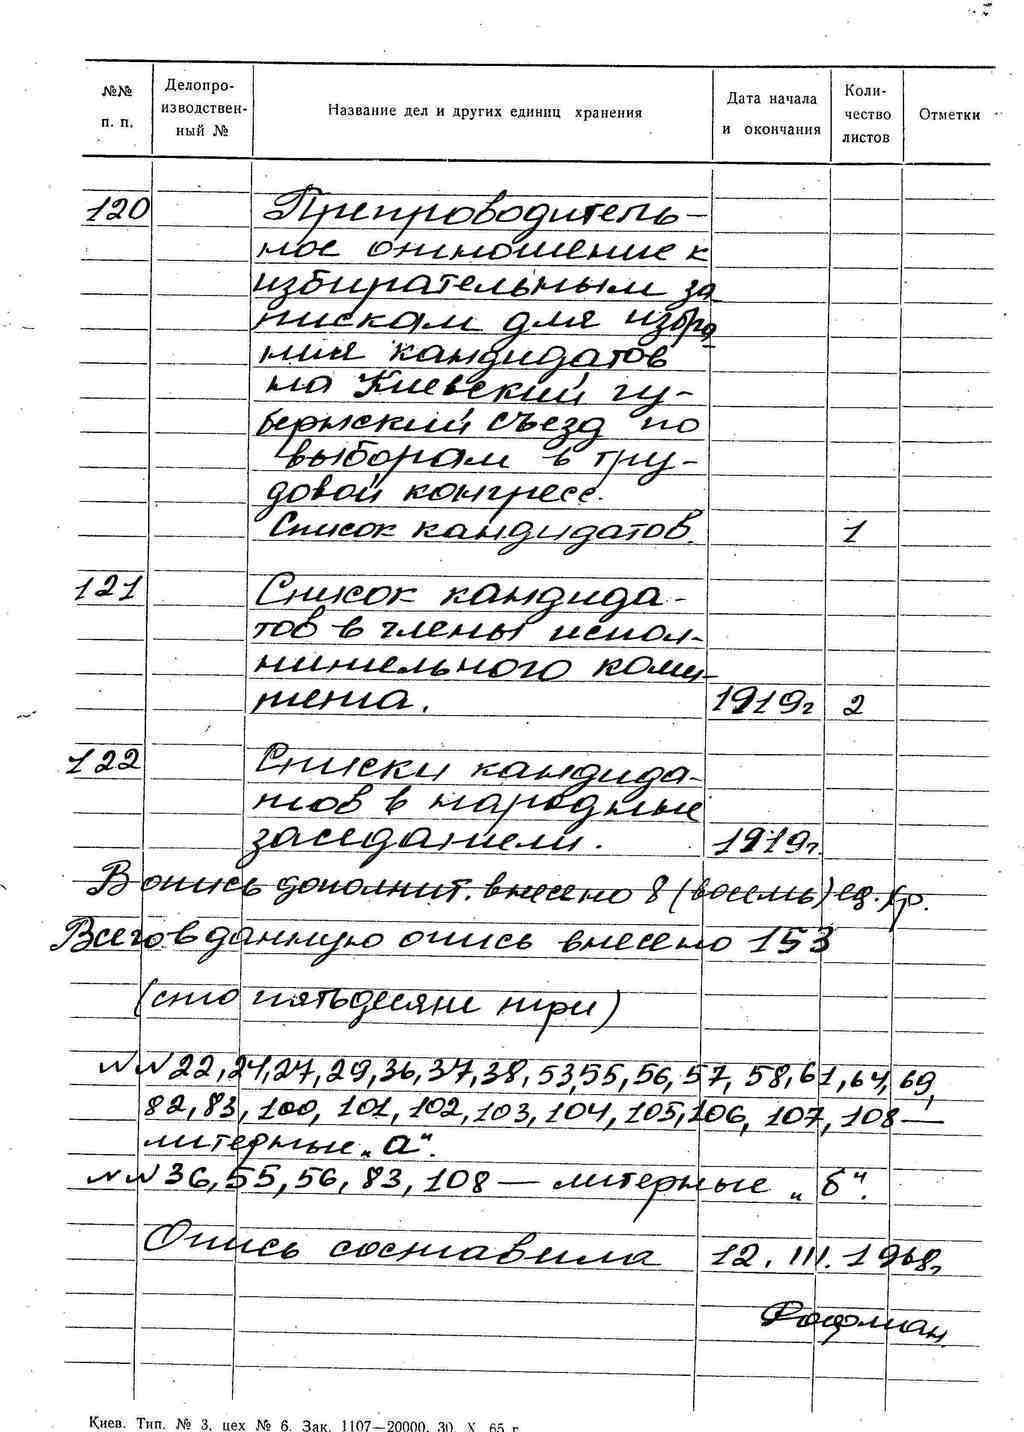 №№ п. п.
Делопро-
изводствен-
ный №
Название дел и других единиц хранения
Дата начала
и окончания
Коли-
чество
листов
Отметки
120 Препроводитель-
ное отношение к
избирательным за-
пискам для избра-
ния кандидатов
на Киевский гу-
бернский съезд по
выборам в тру-
довой конгресс.
Список кандидатов. 1
121 Список кандида-
тов в члены испол-
нительного коми-
тета. 1919г 2
122 Списки кандида-
тов в народные
заседатели. 1919г.
В опись дополнит. внесено 8 (восемь) ед. хр.
Всего в данную опись внесено 153
(сто пятьдесят три)
№№ 22, 24, 27, 29, 36, 37, 38, 53, 55, 56, 57, 58, 61, 64, 69,
82, 83, 100, 101, 102, 103, 104, 105, 106, 107, 108 —
литерные „а“.
№№ 36, 55, 56, 83, 108 — литерные „б“.
Опись составила 12. III. 1968г.
Киев. Тип. № 3, цех № 6. Зак. 1107—20000. 30. X. 65 г.